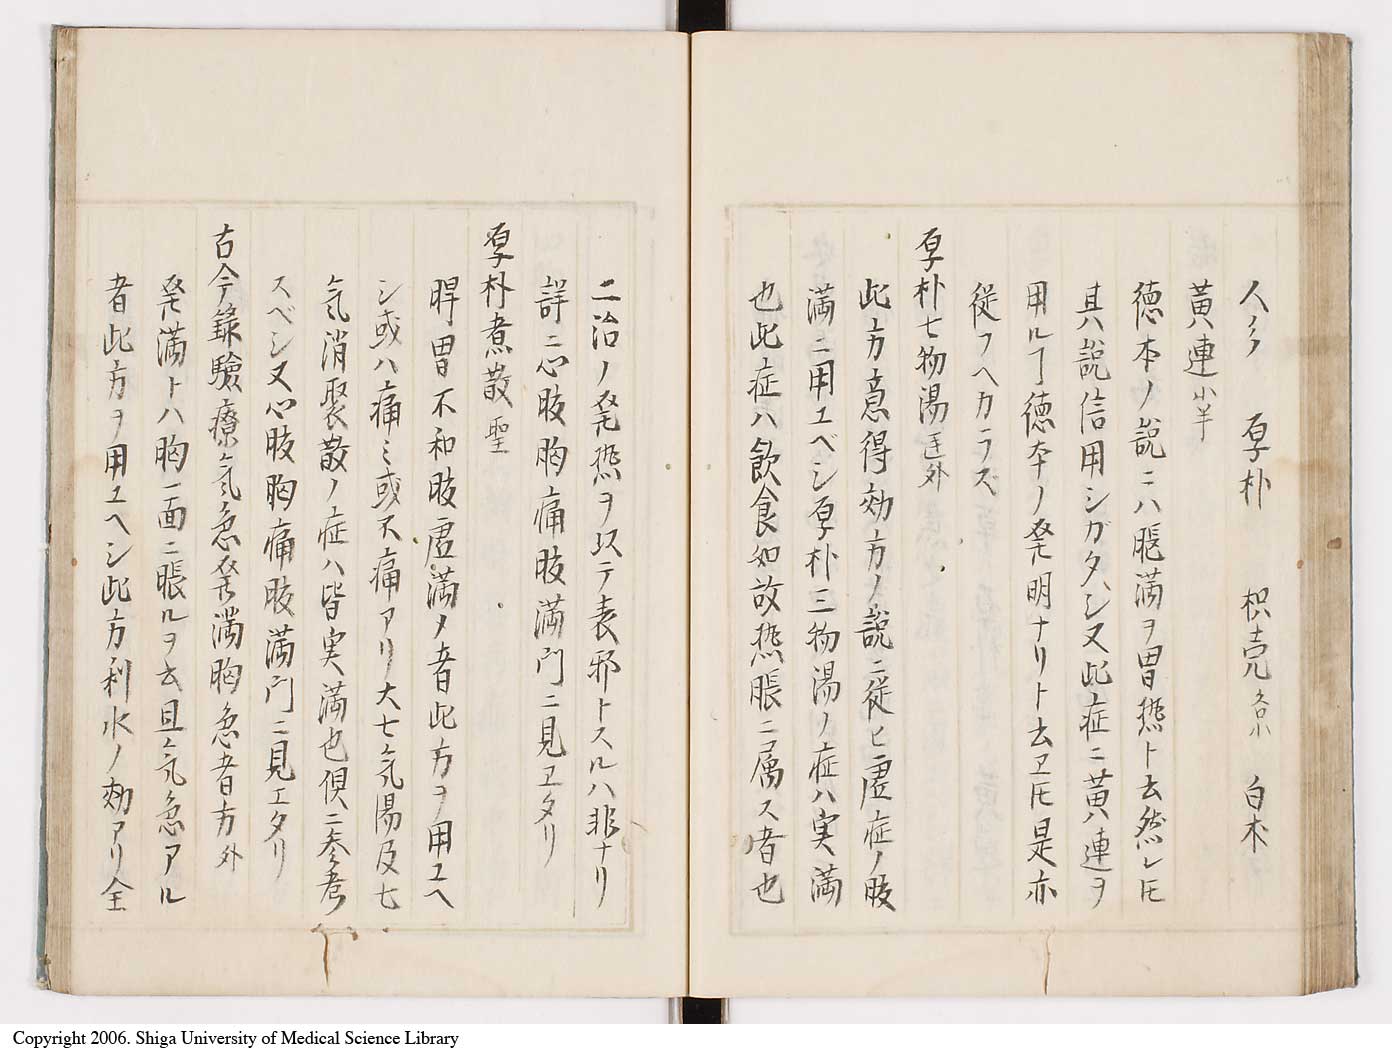 人参　厚朴　枳壳各小　白朮
黄連小半
徳本ノ説ニハ脹満ヲ胃熱ト云然レ𪜈
其ハ説信用シガタシ又此症ニ黄連ヲ
用ルヿ徳本ノ発明ナリト云ヱ𪜈是亦
従フヘカラズ
厚朴七物湯 外
此方意得効方ノ説ニ従ヒ虚症ノ腹
満ニ用ユベシ厚朴三物湯ノ症ハ実満
也此症ハ飲食如故熱脹ニ属ス者也
ニ治ノ発熱ヲ以テ表邪トスルハ非ナリ
詳ニ心腹胸痛腹満門ニ見ヱタリ
厚朴煮散 聖
脾胃不和腹虚満ノ者此方ヲ用ユヘ
シ或ハ痛ミ或不痛アリ大七気湯及七
気消聚散ノ症ハ皆実満也倶ニ参考
スベシ又心腹胸痛腹満門ニ見エタリ
古今録験療気急発満胸急者方 外
発満トハ胸一面ニ脹ルヲ云且気急アル
者此方ヲ用ユヘシ此方利水ノ効アリ全
Copyright 2006. Shiga University of Medical Science Library